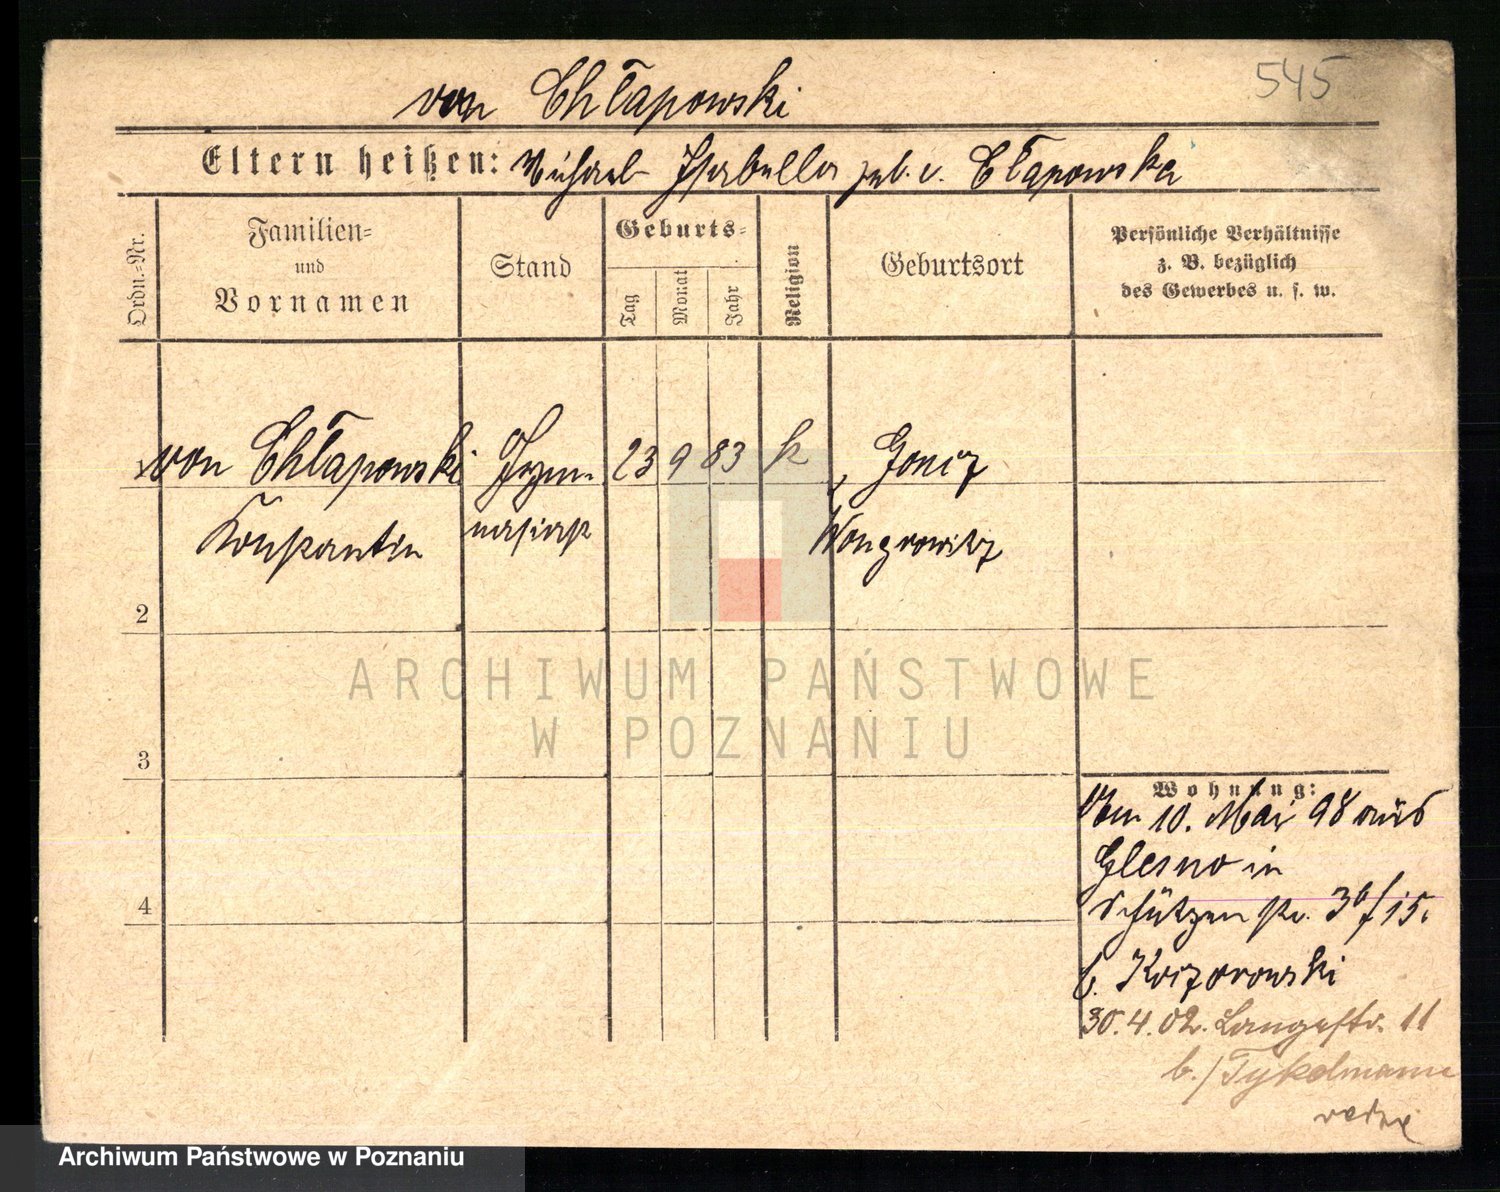 545
von Chłapowski
Eltern heißen: Michael Isabella geb. v. Chłapowska
Ordn.-Nr.
Familien- und Vornamen
Stand
Geburts-
Tag
Monat
Jahr
Religion
Geburtsort
Persönliche Verhältnisse
z. B. bezüglich
des Gewerbes u. s. w.
1 von Chłapowski Gym- 23 9 83 k
Konstantin nasiast Wongrowitz
2
3
4
Wohnung:
Vom 10. Mai 98 aus
Glesno in
Schützenstr. 3b/15.
b. Koczorowski
30.4.02. Langestr. 11
b./Tykdmann
ARCHIWUM PAŃSTWOWE
W POZNANIU
Archiwum Państwowe w Poznaniu